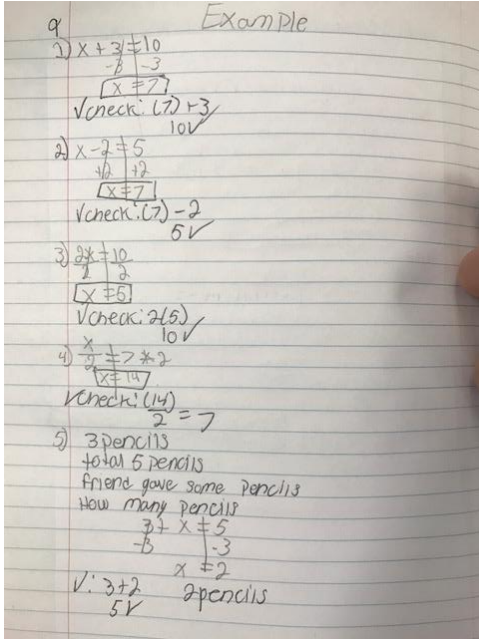 Example
9
1) x + 3 = 10
-3 -3
x = 7
√check: (7) + 3
10 ✓
2) x - 2 = 5
+2 +2
x = 7
√check: (7) - 2
5 ✓
3) 2x = 10
2 2
x = 5
√check: 2(5)
10 ✓
4) x/2 = 7 * 2
x = 14
√check: (14)/2 = 7
5) 3 pencils
total 5 pencils
friend gave some pencils
How many pencils
3 + x = 5
-3 -3
x = 2
√: 3+2 2 pencils
5 ✓